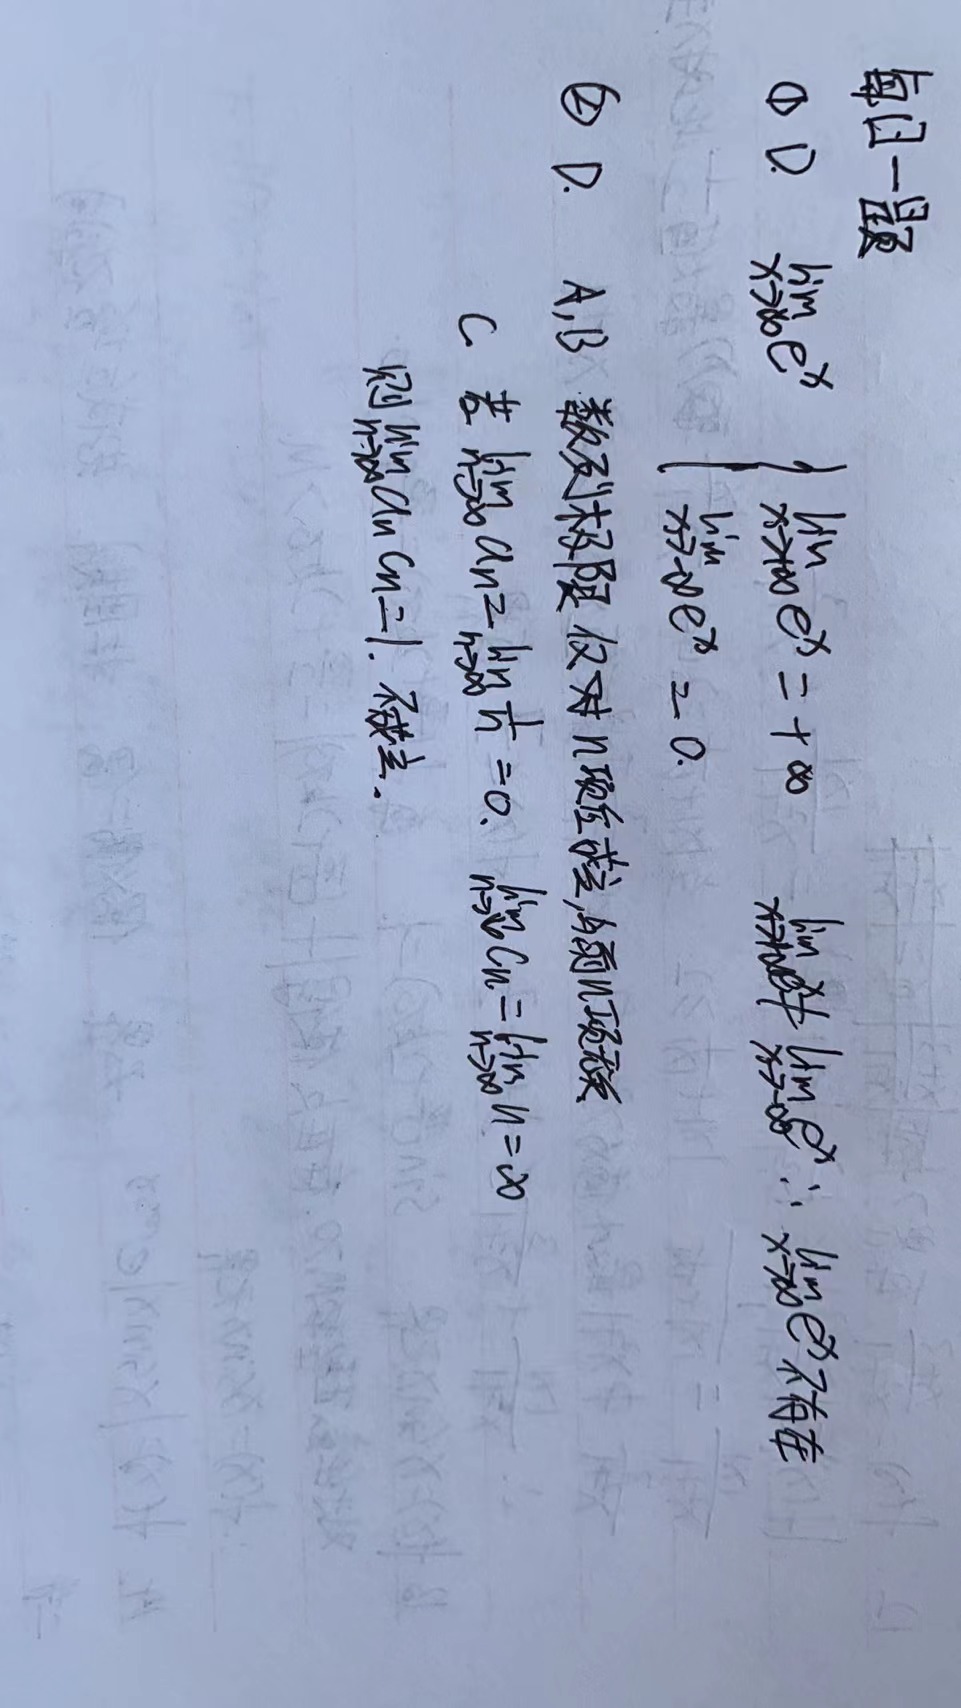 每日一题
① D. lim x→∞ e^x { lim x→+∞ e^x = +∞ lim x→+∞ e^x ≠ lim x→-∞ e^x ∴ lim x→∞ e^x 不存在
lim x→-∞ e^x = 0.
② D. A,B 数列极限仅对n项后成立,与前n项无关
C 若 lim n→∞ an = lim n→∞ 1/n = 0. lim n→∞ Cn = lim n→∞ n = ∞
则 lim n→∞ an Cn = 1. 不成立.